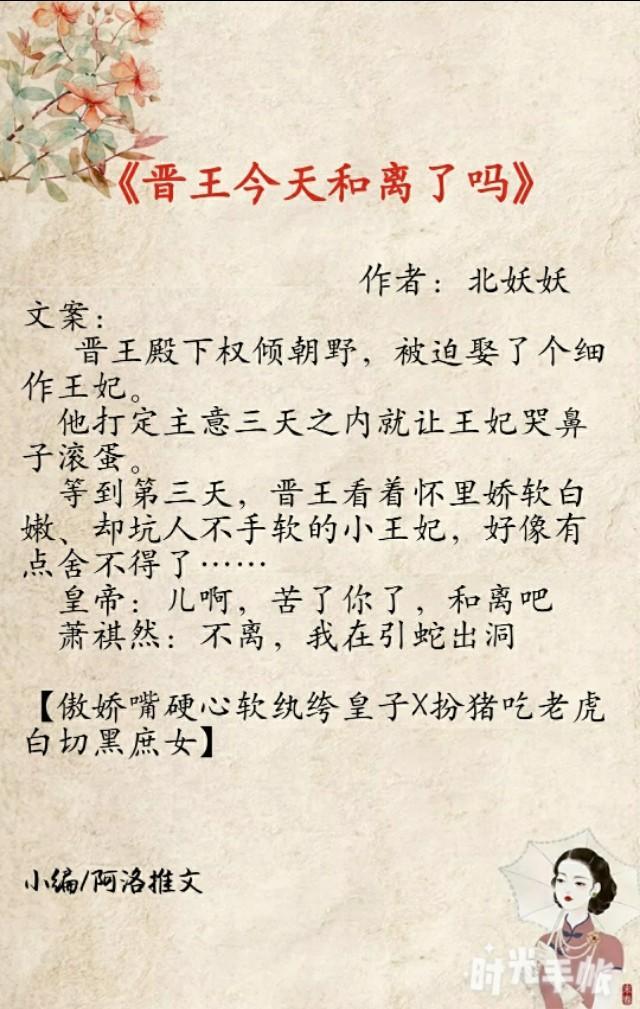 《晋王今天和离了吗》
作者：北妖妖
文案：
晋王殿下权倾朝野，被迫娶了个细
作王妃。
他打定主意三天之内就让王妃哭鼻
子滚蛋。
等到第三天，晋王看着怀里娇软白
嫩、却坑人不手软的小王妃，好像有
点舍不得了……
皇帝：儿啊，苦了你了，和离吧
萧祺然：不离，我在引蛇出洞
【傲娇嘴硬心软纨绔皇子X扮猪吃老虎
白切黑庶女】
小编/阿洛推文
时光手帐